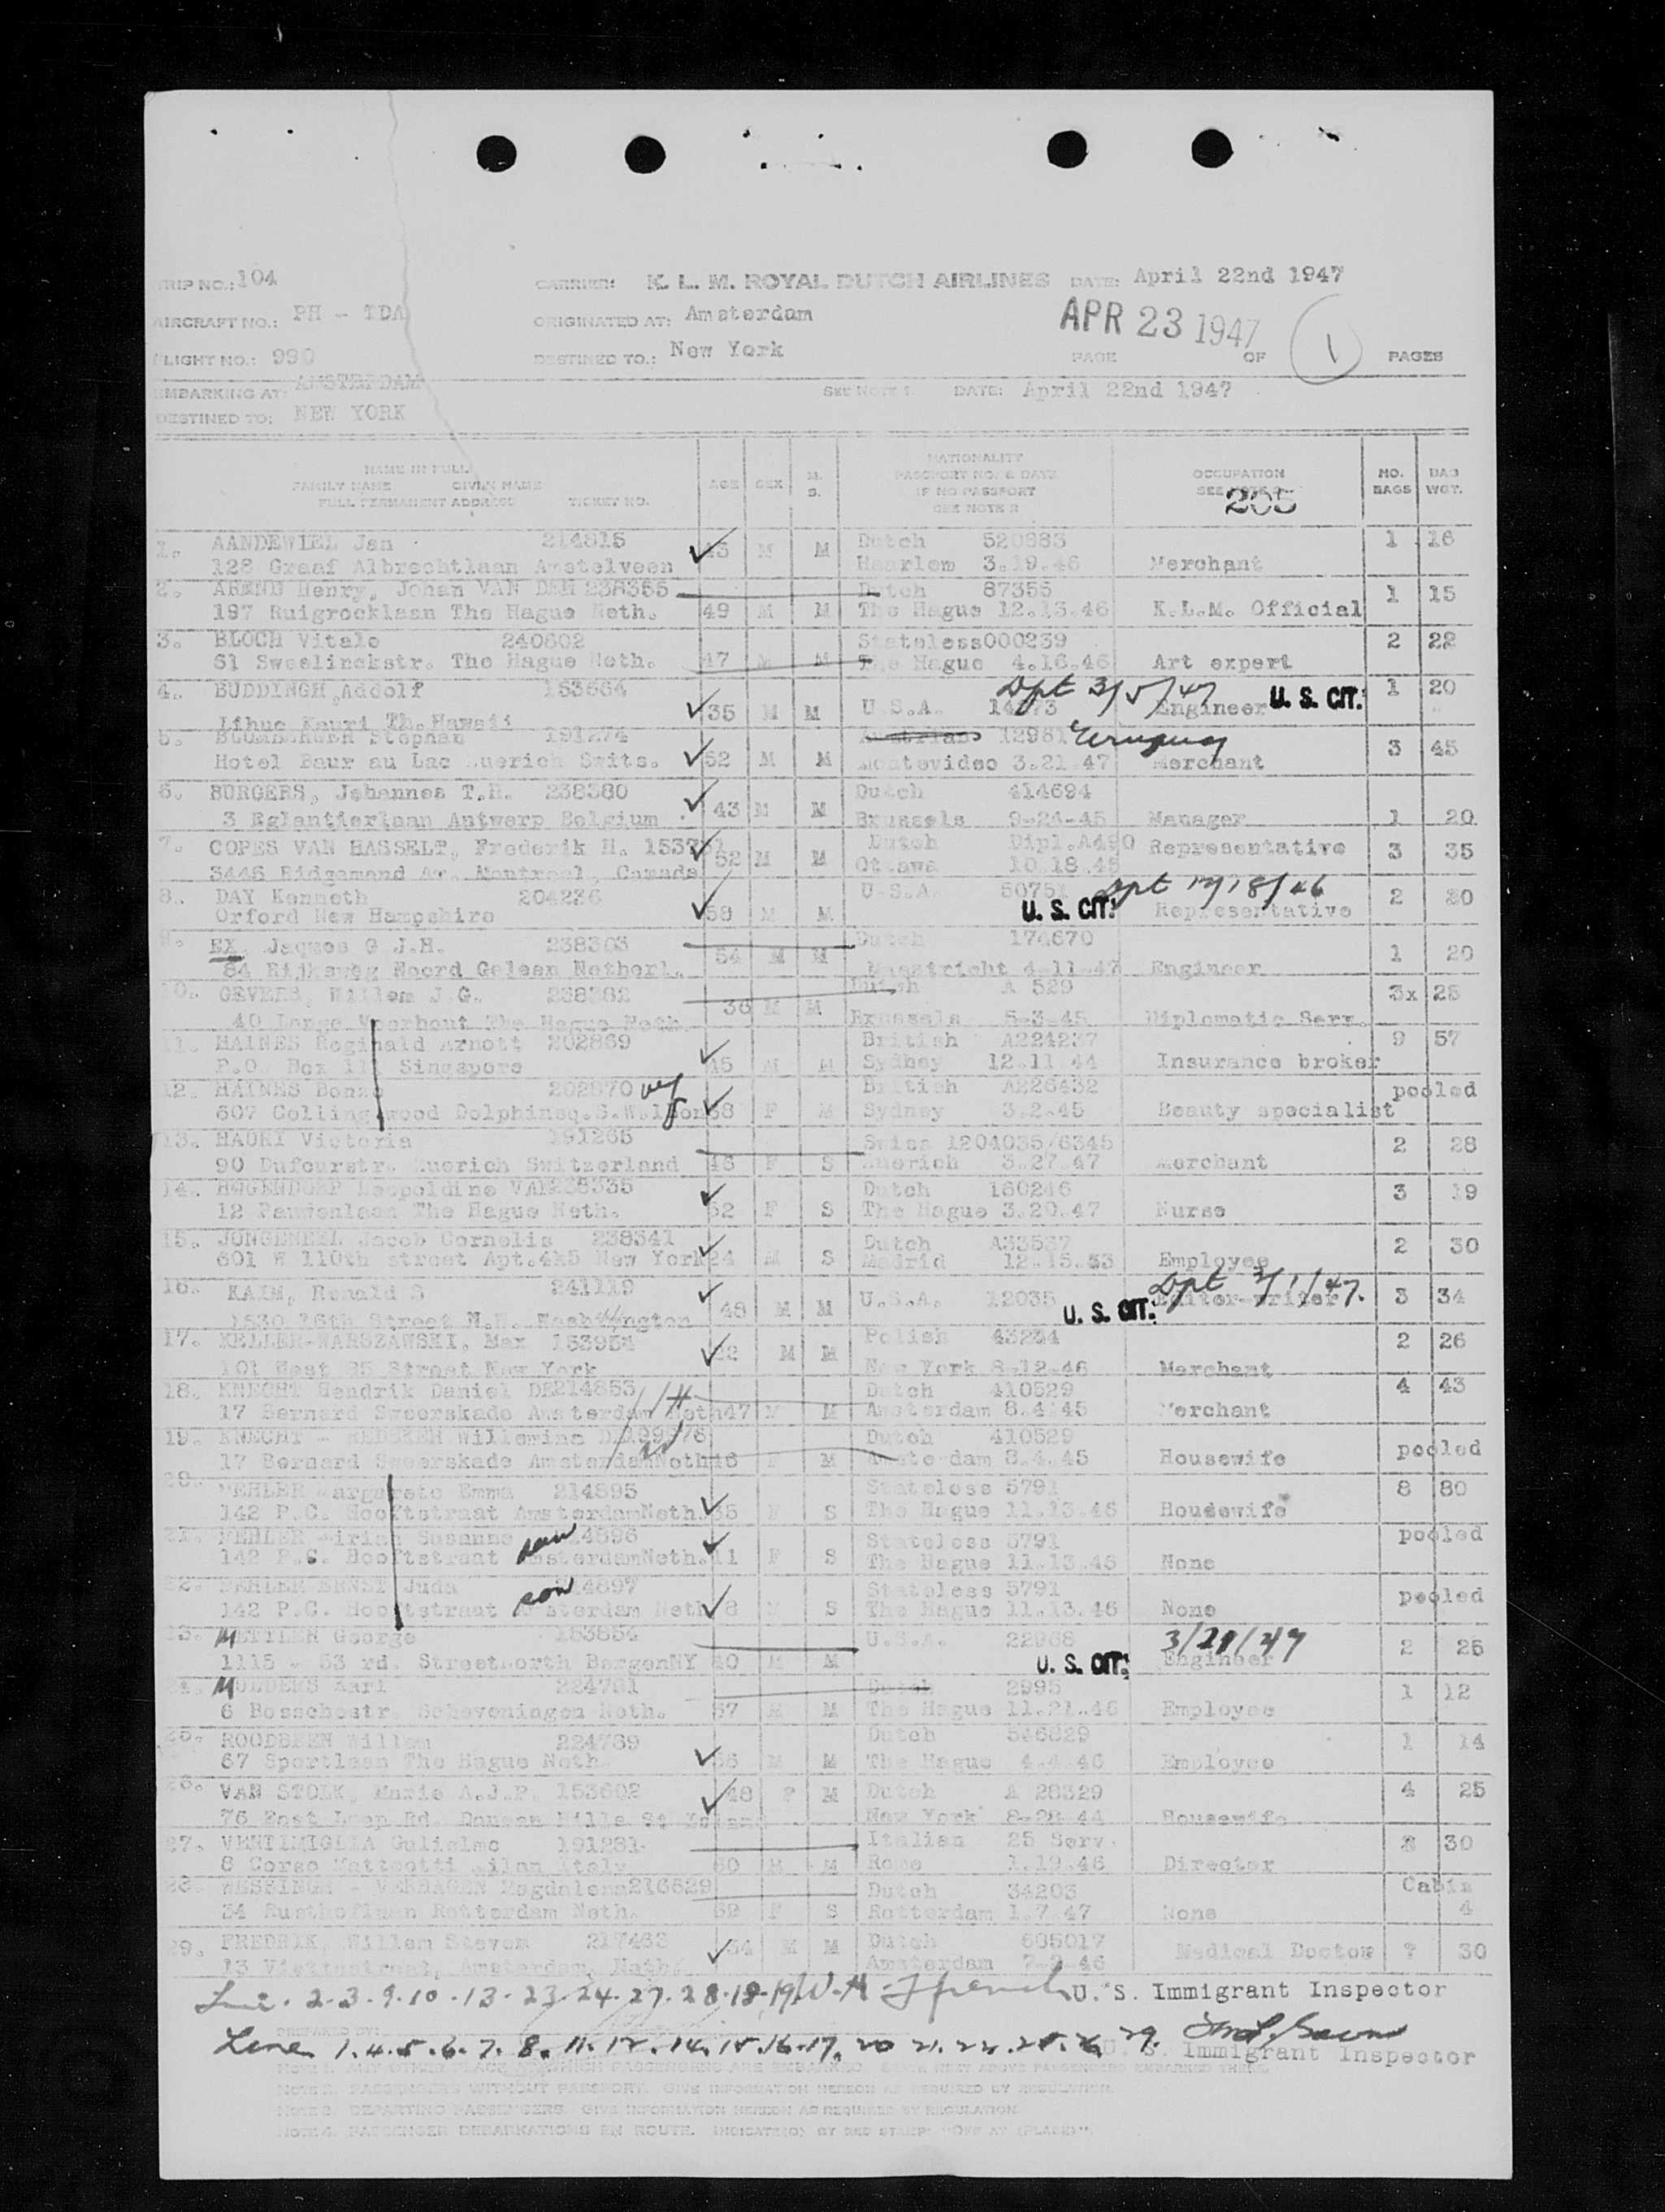 TRIP NO.: 104 CARRIER: K. L. M. ROYAL DUTCH AIRLINES DATE: April 22nd 1947
AIRCRAFT NO.: PH - TDA ORIGINATED AT: Amsterdam APR 23 1947
FLIGHT NO.: 990 DESTINED TO.: New York PAGE 1 OF PAGES
EMBARKING AT: AMSTERDAM SEE NOTE 1 DATE: April 22nd 1947
DESTINED TO: NEW YORK
NAME IN FULL
FAMILY NAME GIVEN NAME
FULL PERMANENT ADDRESS TICKET NO.
AGE SEX M. S.
NATIONALITY
PASSPORT NO. & DATE
IF NO PASSPORT
SEE NOTE 2
OCCUPATION
SEE NOTE
205
NO. BAGS BAG WGT.
1. AANDEWIEL Jan 214815 45 M M Dutch 520883 1 16
128 Graaf Albrechtlaan Amstelveen Haarlem 3.19.46 Merchant
2. AREND Henry, Johan VAN DEN 238355 Dutch 87355 1 15
197 Ruigrocklaan The Hague Neth. 49 M M The Hague 12.13.46 K.L.M. Official
3. BLOCH Vitale 240602 Stateless 000239 2 22
61 Sweelinckstr. The Hague Neth. 47 M M The Hague 4.16.46 Art expert
4. BUDDINGH, Addolf 153664 Dpt 3/5/47 1 20
Lihue Kauri Th. Hawaii 35 M M U.S.A. Engineer U. S. CIT.
5. Stephan 191274 Austrian 12981 Uruguay 3 45
Hotel Baur au Lac Zuerich Swits. 52 M M Montevideo 3.21.47 Merchant
6. BURGERS, Johannes T.H. 238380 Dutch 414694
3 Eglantierlaan Antwerp Belgium 43 M M Brussels 9-24-45 Manager 1 20
7. COPES VAN HASSELT, Frederik H. 52 M M Dutch Dipl.A490 Representative 3 35
3445 Ridgemand Av. Montreal, Canada Ottawa 10.18.45
8. DAY Kenneth 204236 U.S.A. Dpt 12/18/46 2 30
Orford New Hampshire 59 M M U. S. CIT. Representative
9. EX, Jaques G J.H. 238303 Dutch 174670
84 Rijksweg Noord Geleen Netherl. 54 M M Maastricht 4-11-47 Engineer 1 20
10. GEVERS, Willem J.G. 238382 Dutch A 529 3x 25
40 Lange Voorhout The Hague Neth. 36 M M Brussels 5-3-45 Diplomatic Serv.
11. HAINES Reginald Arnott 202869 British A224237 9 57
P.O. Box 111 Singapore 45 M M Sydney 12.11 44 Insurance broker
12. HAINES 202870 wf British A226432 pooled
607 Collingwood 38 F M Sydney 3.2.45 Beauty specialist
13. HAURI Victoria 191265 Swiss 1204035/6345 2 28
90 Dufourstr. Zuerich Switzerland 46 F S Zuerich 3.27.47 Merchant
14. HOGENDORP Leopoldine VAN 238335 Dutch 160246 3 19
12 The Hague Neth. 52 F S The Hague 3.20.47 Nurse
15. JONGENEEL Jacob Cornelis 238341 Dutch 2 30
601 W 110th street Apt.4k5 New York 24 M S Madrid Employee
16. KAIN, Ronald S 241119 U.S.A. 12035 Dpt 3/1/47. 3 34
1530 16th Street N.W. Washington 48 M M U. S. CIT. Editor-writer
17. KELLER-WARSZAWSKI, Max 153954 Polish 43244 2 26
101 West 85 Street New York M M New York 8-12-46 Merchant
18. KNECHT Hendrik Daniel DE 214853 Dutch 410529 4 43
17 Bernard Amsterdam Neth 47 M M Amsterdam 8.4.45 Merchant
19. KNECHT - Willemina DE Dutch 410529 pooled
17 Bernard Amsterdam Neth 46 F M Amsterdam 8.4.45 Housewife
20. MEHLER Margarete Emma 214895 Stateless 5791 8 80
142 P.C. Hooftstraat Amsterdam Neth. 35 F S The Hague 11.13.46 Housewife
21. MEHLER Miriam Susanne Stateless 5791 pooled
142 P.C. Hooftstraat Amsterdam Neth. 11 F S The Hague 11.13.46 None
22. MEHLER ERNST Juda son 214897 Stateless 5791 pooled
142 P.C. Hooftstraat Amsterdam Neth 8 M S The Hague 11.13.46 None
23. METTLER George 153554 U.S.A. 22968 3/21/47 2 25
1115 - 53 rd. Street North Bergen NY 40 M M U. S. CIT. Engineer
24. MULDERS Karl 224791 Dutch 2995 1 12
6 Bosschestr. Scheveningen Neth. 57 M M The Hague 11.21.46 Employee
25. Willem 224789 Dutch 1 14
67 Sportlaan The Hague Neth. M M The Hague 4.4.46 Employee
26. VAN STOLK, Marie A.J.P. 153602 48 F M Dutch A 28329 4 25
76 East Loop Rd. New York 8-28-44 Housewife
27. VENTIMIGLIA Gulielmo 191281 Italian 25 Serv. 3 30
8 Corso Matteotti Milan Italy 60 M M Rome 1.19.46 Director
28. WESSINGH - VERHAGEN Magdalena 216629 Dutch 34203 Cabin
34 Rotterdam Neth. F S Rotterdam 1.7.47 None 4
29. FREDRIK, Willem Stevem 217463 34 M M Dutch 685017 Medical Doctor ? 30
13 Amsterdam, Neth. Amsterdam
Line. 2-3-9-10-13-23-24-27-28-18-19 U. S. Immigrant Inspector
PREPARED BY:
Line 1.4.5.6.7.8.11.12.14.15.16.17.20 21.22.25.26 29. U. S. Immigrant Inspector
NOTE 2. PASSENGERS WITHOUT PASSPORT. GIVE INFORMATION HEREON AS REQUIRED BY REGULATION.
NOTE 3. DEPARTING PASSENGERS. GIVE INFORMATION HEREON AS REQUIRED BY REGULATION.
NOTE 4. PASSENGER DEBARKATIONS EN ROUTE. INDICATE(D) BY RED STAMP: "OFF AT (PLACE)".